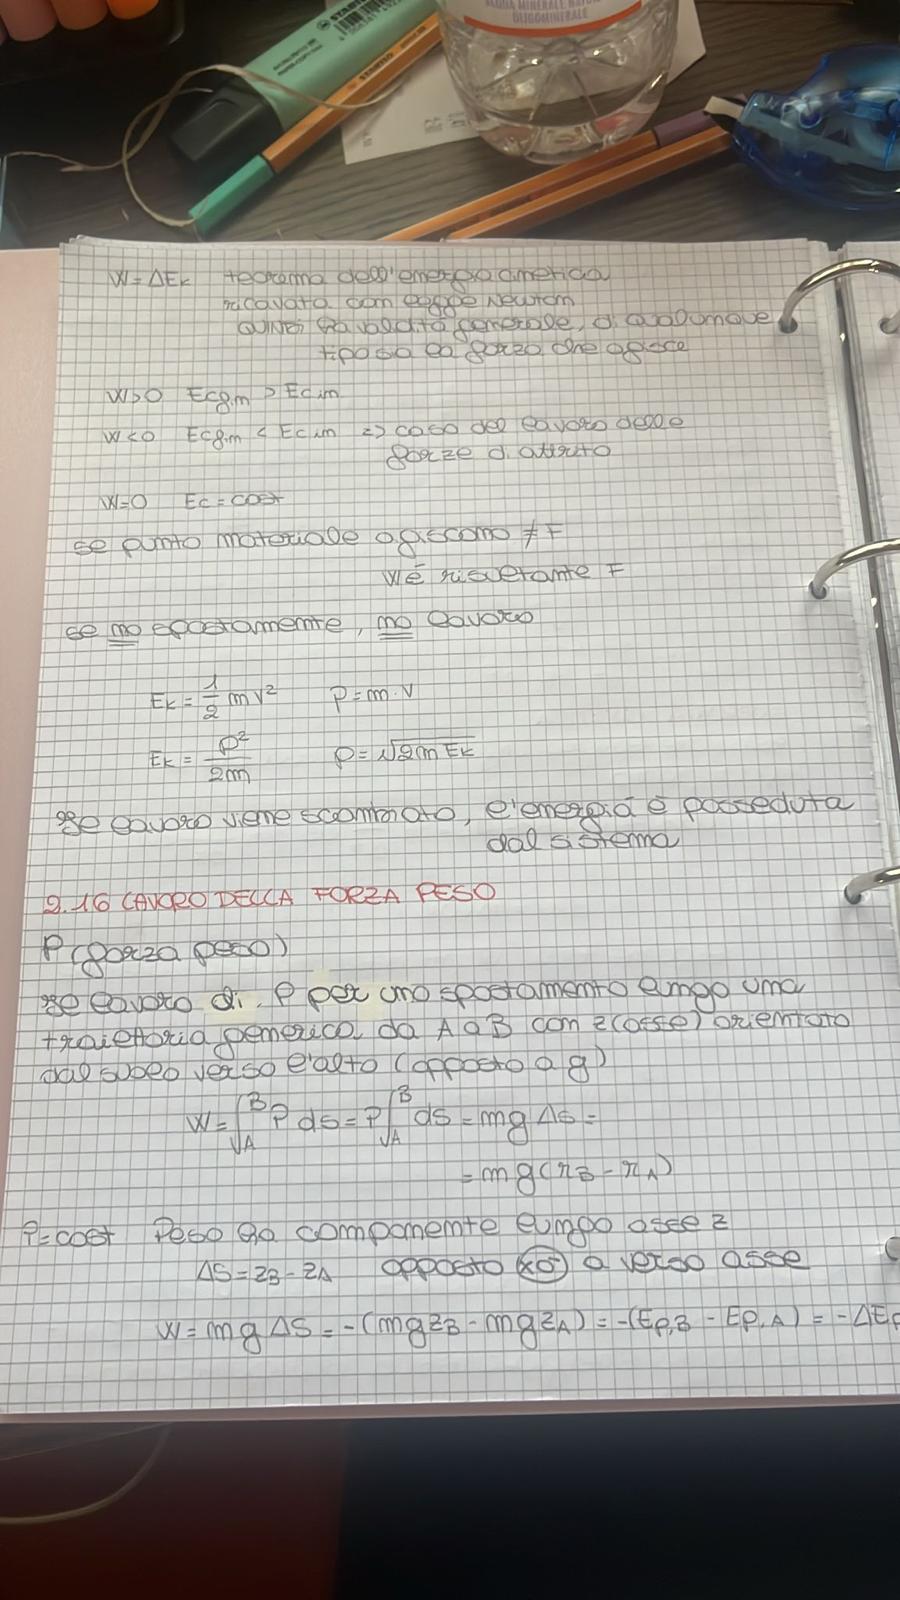 ACQUA MINERALE NATURALE
OLIGOMINERALE
STABILO
W = ΔEk teorema dell'energia cinetica
ricavata con legge Newton
QUINDI ha validità generale, di qualunque
tipo sia la forza che agisce
W>0 Ecfin > Ecin
W<0 Ecfin < Ecin => caso del lavoro delle
forze di attrito
W=0 Ec = cost
se punto materiale agiscono ≠ F
W è risultante F
se no spostamento, no lavoro
Ek = 1/2 mv² p = m · v
Ek = p²/2m p = √2mEk
Il lavoro viene scambiato, l'energia è posseduta
dal sistema
2.16 LAVORO DELLA FORZA PESO
P (forza peso)
Il lavoro di P per uno spostamento lungo una
traiettoria generica da A a B con z (asse) orientato
dal suolo verso l'alto (opposto a g)
W = ∫_A^B P ds = P ∫_A^B ds = mg Δs =
= mg (rB - rA)
P = cost Peso ha componente lungo asse z
Δs = zB - zA opposto a verso asse
W = mg Δs = -(mgzB - mgzA) = -(Ep,B - Ep,A) = -ΔEp